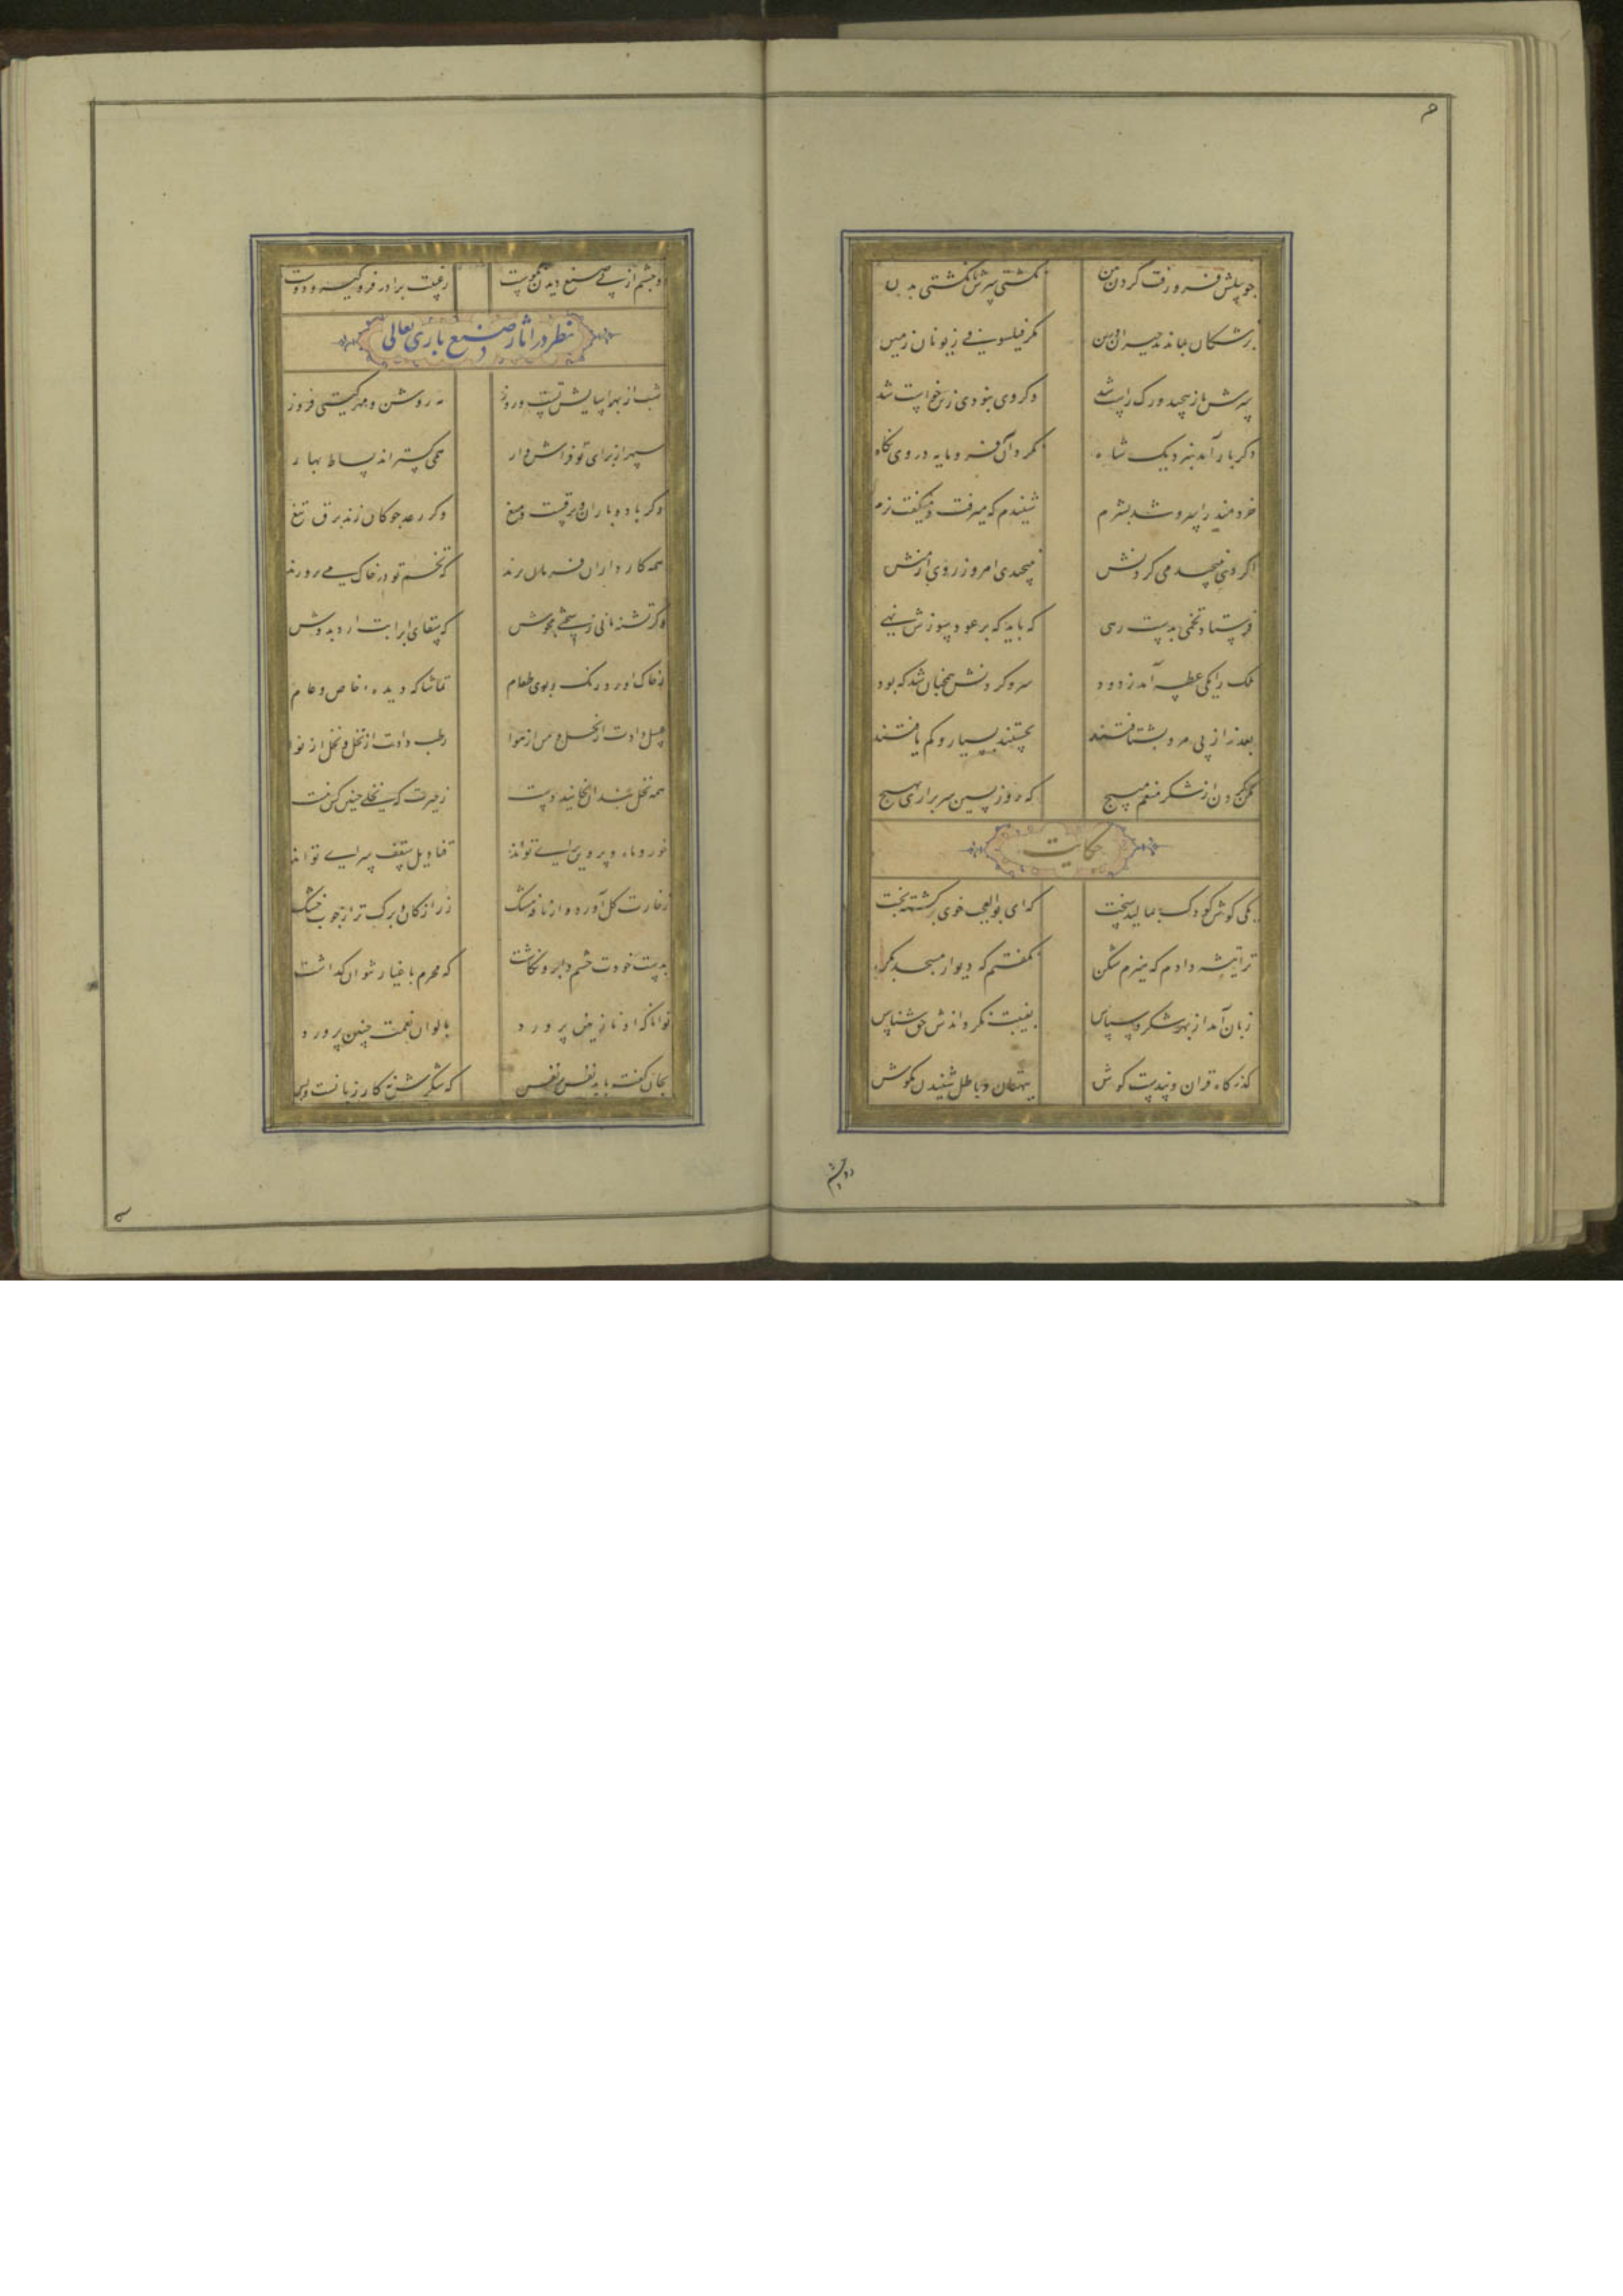 چو پیلش فرو رفت گردن بتن نگشتی سرش تا نگشتی بدن
پزشکان بماندند حیران درین مگر فیلسوفی ز یونان زمین
سرش باز پیچید و رگ راست شد وگر وی نبودی زمن خواست شد
دگر بار آمد بنزدیک شاه نکرد آن فرومایه در وی نگاه
خردمند را سر فرو شد بشرم شنیدم که میرفت و میگفت نرم
اگر دی نپیچیدمی گردنش نپیچیدی امروز روی از منش
فرستاد تخمی بدست رهی که باید که بر عود سوزش نهی
ملک را یکی عطسه آمد ز دود سر و گردنش همچنان شد که بود
بعذر از پی مرد بشتافتند بجستند بسیار و کم یافتند
مکن گردن از شکر منعم مپیچ که روز پسین سر براری بهیچ
حکایت
یکی گوش کودک بمالید سخت که ای بوالعجب خوی برگشته بخت
ترا تیشه دادم که هیزم شکن نگفتم که دیوار مسجد بکن
زبان آمد از بهر شکر و سپاس بغیبت نگرداندش حق شناس
گذرگاه قران و پندست گوش ببهتان و باطل شنیدن مکوش
دو چشم
دو چشم از پی صنع دیدن نکوست ز عیب برادر فرو گیر و دوست
نظر در اثار صنع باری تعالی
شب از بهر اسایش تست و روز مه روشن و مهر گیتی فروز
سپهر از برای تو فراش وار همی گستراند بساط بهار
وگر باد و باران و برقست و میغ وگر رعد چوگان زند برق تیغ
همه کارداران فرمان برند که تخم تو در خاک می پرورند
وگر تشنه مانی ز سختی مجوش که سقای ابر ابت ارد بدوش
ز خاک اورد رنگ و بوی طعام تماشاگه دیده و خاص و عام
عسل دادت از نحل و من از هوا رطب دادت از نخل و نخل از نوا
همه نخل بندان بخایند دست ز حیرت که نخلی چنین کس نبست
خور و ماه و پروین برای تواند قنادیل سقف سرای تواند
ز خارت گل آورد و از نافه مشک زر از کان و برگ تر از چوب خشک
بدست خودت چشم و ابرو نگاشت که محرم باغیار نتوان گذاشت
توانا که او نازنین پرورد بالوان نعمت چنین پرورد
بجان گفت باید نفس بر نفس که شکرش نه کار زبانست و بس